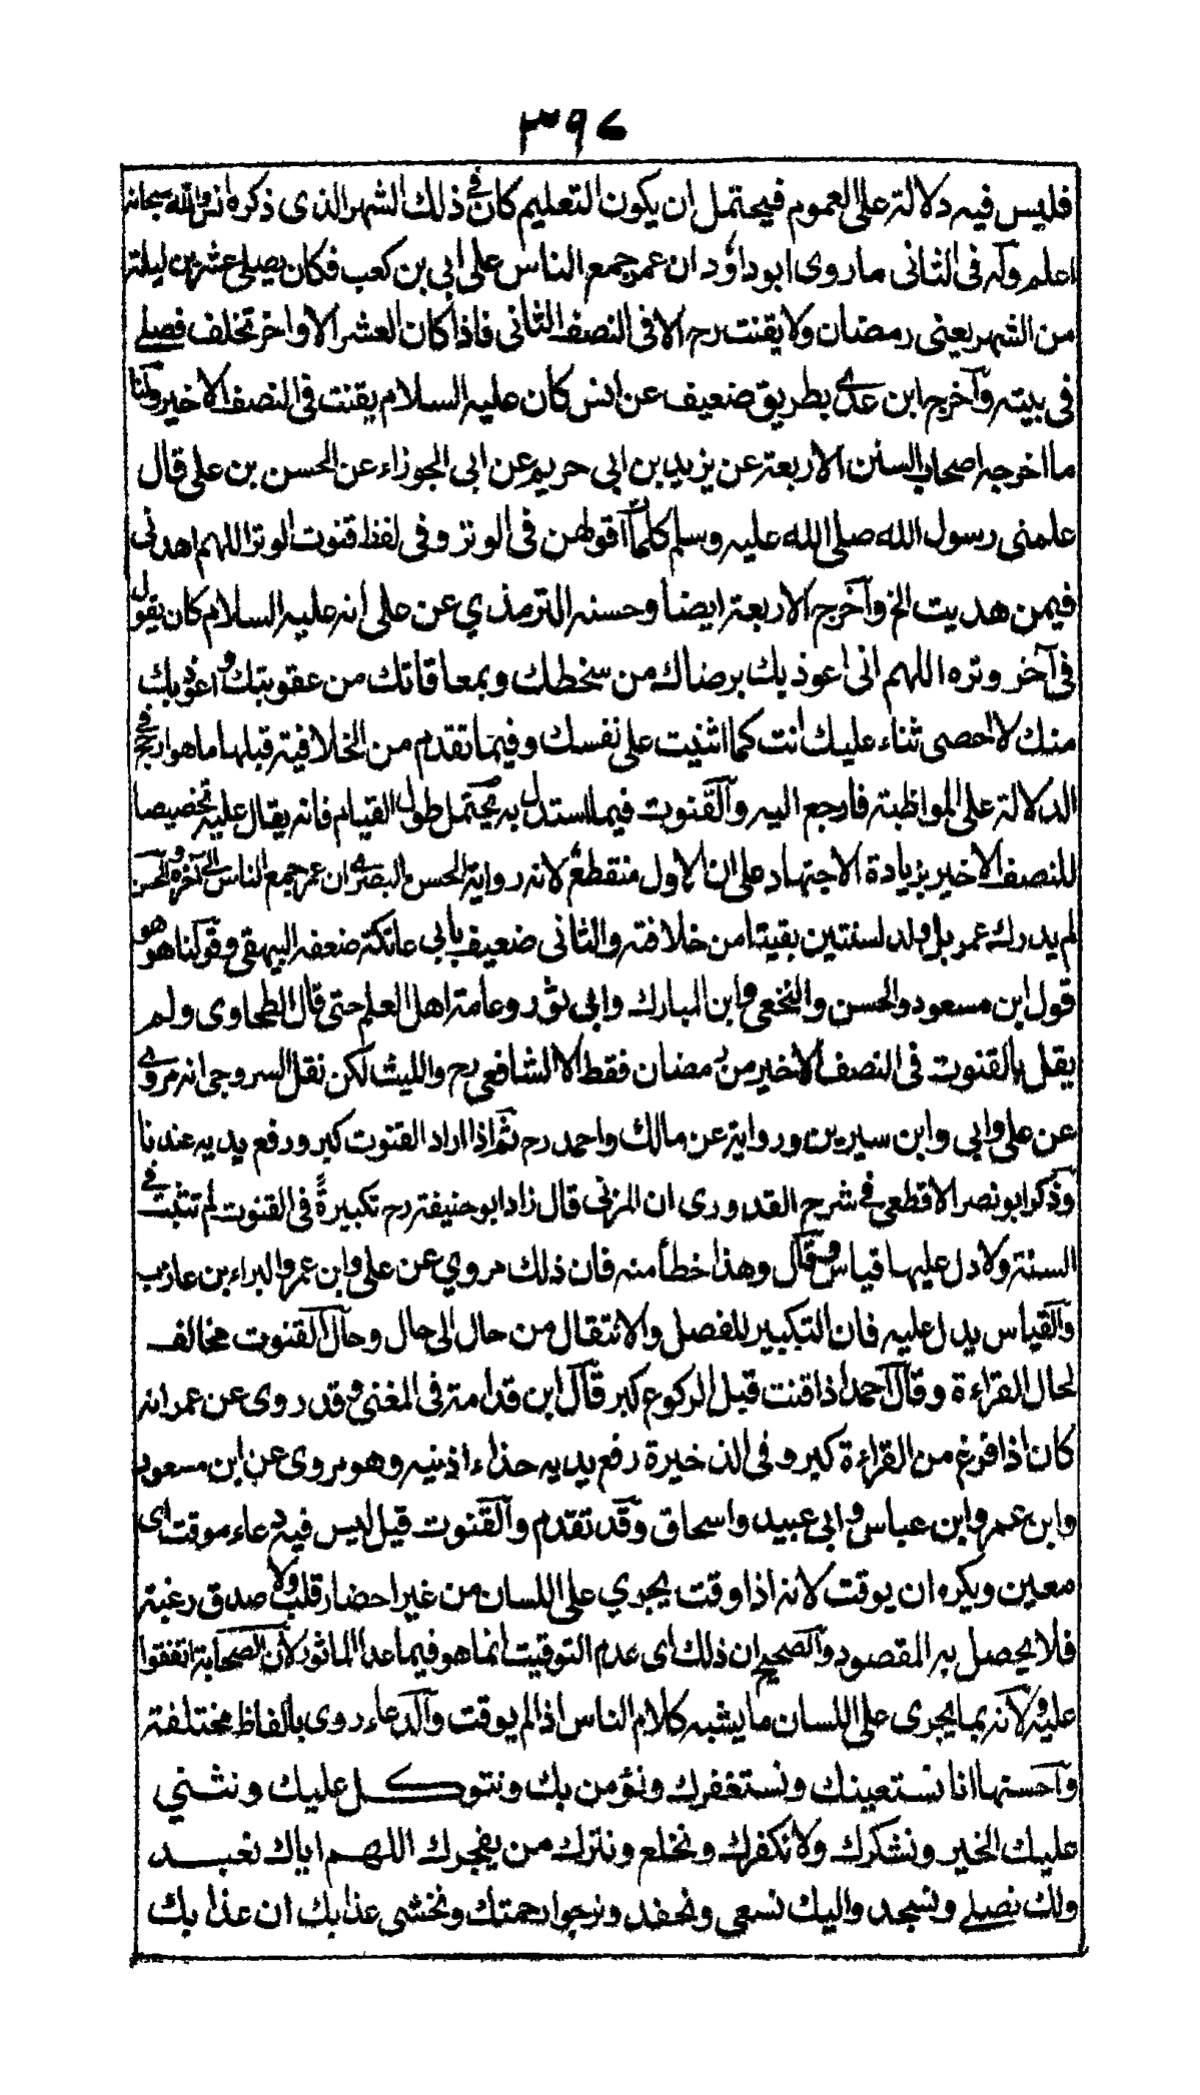 ٣٩٧
فليس فيه دلالة على العموم فيحتمل ان يكون التعليم كان في ذلك الشهر الذى ذكره انس والله سبحانه
اعلم وله فى الثانى ما روى ابو داؤد ان عمر جمع الناس على ابى بن كعب فكان يصلى عشرين ليلة
من الشهر يعنى رمضان ولا يقنت رح الا فى النصف الثانى فاذا كان العشر الاواخر تخلف فصلى
فى بيته وآخرج ابن عدى بطريق ضعيف عن انس كان عليه السلام يقنت فى النصف الاخير ولنا
ما اخرجه اصحاب السنن الاربعة عن يزيد بن ابى حريم عن ابى الجوزاء عن الحسن بن على قال
علمنى رسول الله صلى الله عليه وسلم كلمات اقولهن فى الوتر وفى لفظ قنوت الوتر اللهم اهدنى
فيمن هديت الخ وآخرج الاربعة ايضا وحسنه الترمذي عن على انه عليه السلام كان يقول
فى آخر وتره اللهم انى اعوذ بك برضاك من سخطك وبمعافاتك من عقوبتك واعوذ بك
منك لا احصى ثناء عليك انت كما اثنيت على نفسك وفيما تقدم من الخلافية قبلها ما هو ارجح فى
الدلالة على المواظبة فارجع اليه وآلقنوت فيما استدل به يحتمل طول القيام فانه يقال عليه تخصيصا
للنصف الاخير بزيادة الاجتهاد على ان الاول منقطع لانه رواية الحسن البصرى ان عمر جمع الناس الى آخره والحسن
لم يدرك عمر بل ولد لسنتين بقيتا من خلافته والثانى ضعيف بابى عاتكة ضعفه البيهقى وقولنا هو
قول ابن مسعود والحسن والنخعى وابن المبارك وابى ثور وعامة اهل العلم حتى قال الطحاوى ولم
يقل بالقنوت فى النصف الاخير من رمضان فقط الا الشافعى رح والليث لكن نقل السروجى انه مروى
عن على وابي وابن سيرين ورواية عن مالك واحمد رح ثم اذا اراد القنوت كبر ورفع يديه عندنا
وذكر ابو نصر الاقطعى فى شرح القدورى ان المزنى قال زاد ابو حنيفة رح تكبيرةً فى القنوت لم تثبت فى
السنة ولا دل عليها قياس وقال وهذا خطأ منه فان ذلك مروي عن على وابن عمر والبراء بن عازب
وآلقياس يدل عليه فان التكبير للفصل والانتقال من حال الى حال وحال القنوت مخالف
لحال القراءة وقال احمد اذا قنت قبل الركوع كبر قال ابن قدامة فى المغنى وقد روى عن عمر انه
كان اذا فرغ من القراءة كبر وفى الذخيرة رفع يديه حذاء اذنيه وهو مروى عن ابن مسعود
وابن عمر وابن عباس وابى عبيد واسحاق وقد تقدم وآلقنوت قيل ليس فيه دعاء موقت اى
معين ويكره ان يوقت لانه اذا وقت يجري على اللسان من غير احضار قلب ولا صدق رغبة
فلا يحصل به المقصود وآلصحيح ان ذلك اى عدم التوقيت انما هو فيما عدا الماثور لان الصحابة اتفقوا
عليه ولانه بما يجرى على اللسان ما يشبه كلام الناس اذا لم يوقت وآلدعاء روى بالفاظ مختلفة
وآحسنها انا نستعينك ونستغفرك ونؤمن بك ونتوكل عليك ونثني
عليك الخير ونشكرك ولا نكفرك ونخلع ونترك من يفجرك اللهم اياك نعبد
ولك نصلى ونسجد واليك نسعى ونحفد ونرجوا رحمتك ونخشى عذابك ان عذابك